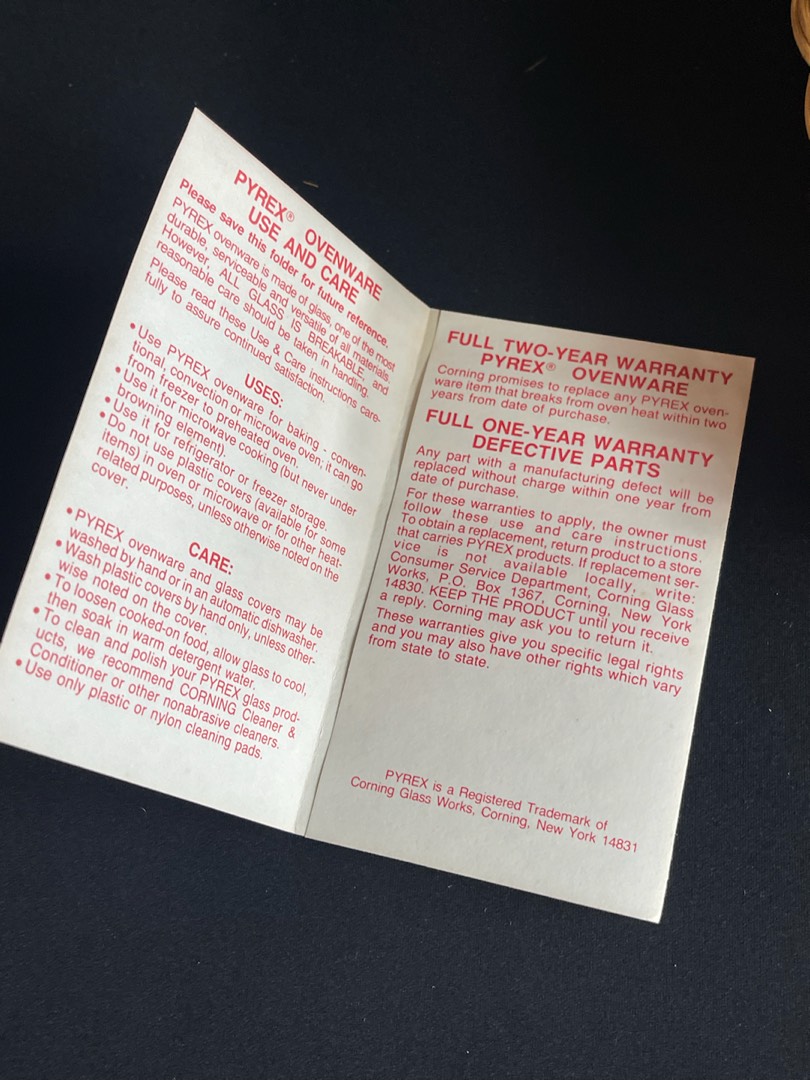 PYREX® OVENWARE
USE AND CARE
Please save this folder for future reference.
PYREX ovenware is made of glass, one of the most
durable, serviceable and versatile of all materials.
However, ALL GLASS IS BREAKABLE, and
reasonable care should be taken in handling.
Please read these Use & Care instructions care-
fully to assure continued satisfaction.
USES:
• Use PYREX ovenware for baking - conven-
tional, convection or microwave oven; it can go
from freezer to preheated oven.
• Use it for microwave cooking (but never under
browning element).
• Use it for refrigerator or freezer storage.
• Do not use plastic covers (available for some
items) in oven or microwave or for other heat-
related purposes, unless otherwise noted on the
cover.
CARE:
• PYREX ovenware and glass covers may be
washed by hand or in an automatic dishwasher.
• Wash plastic covers by hand only, unless other-
wise noted on the cover.
• To loosen cooked-on food, allow glass to cool,
then soak in warm detergent water.
• To clean and polish your PYREX glass prod-
ucts, we recommend CORNING Cleaner &
Conditioner or other nonabrasive cleaners.
• Use only plastic or nylon cleaning pads.
FULL TWO-YEAR WARRANTY
PYREX® OVENWARE
Corning promises to replace any PYREX oven-
ware item that breaks from oven heat within two
years from date of purchase.
FULL ONE-YEAR WARRANTY
DEFECTIVE PARTS
Any part with a manufacturing defect will be
replaced without charge within one year from
date of purchase.
For these warranties to apply, the owner must
follow these use and care instructions.
To obtain a replacement, return product to a store
that carries PYREX products. If replacement ser-
vice is not available locally, write:
Consumer Service Department, Corning Glass
Works, P.O. Box 1367, Corning, New York
14830. KEEP THE PRODUCT until you receive
a reply. Corning may ask you to return it.
These warranties give you specific legal rights
and you may also have other rights which vary
from state to state.
PYREX is a Registered Trademark of
Corning Glass Works, Corning, New York 14831